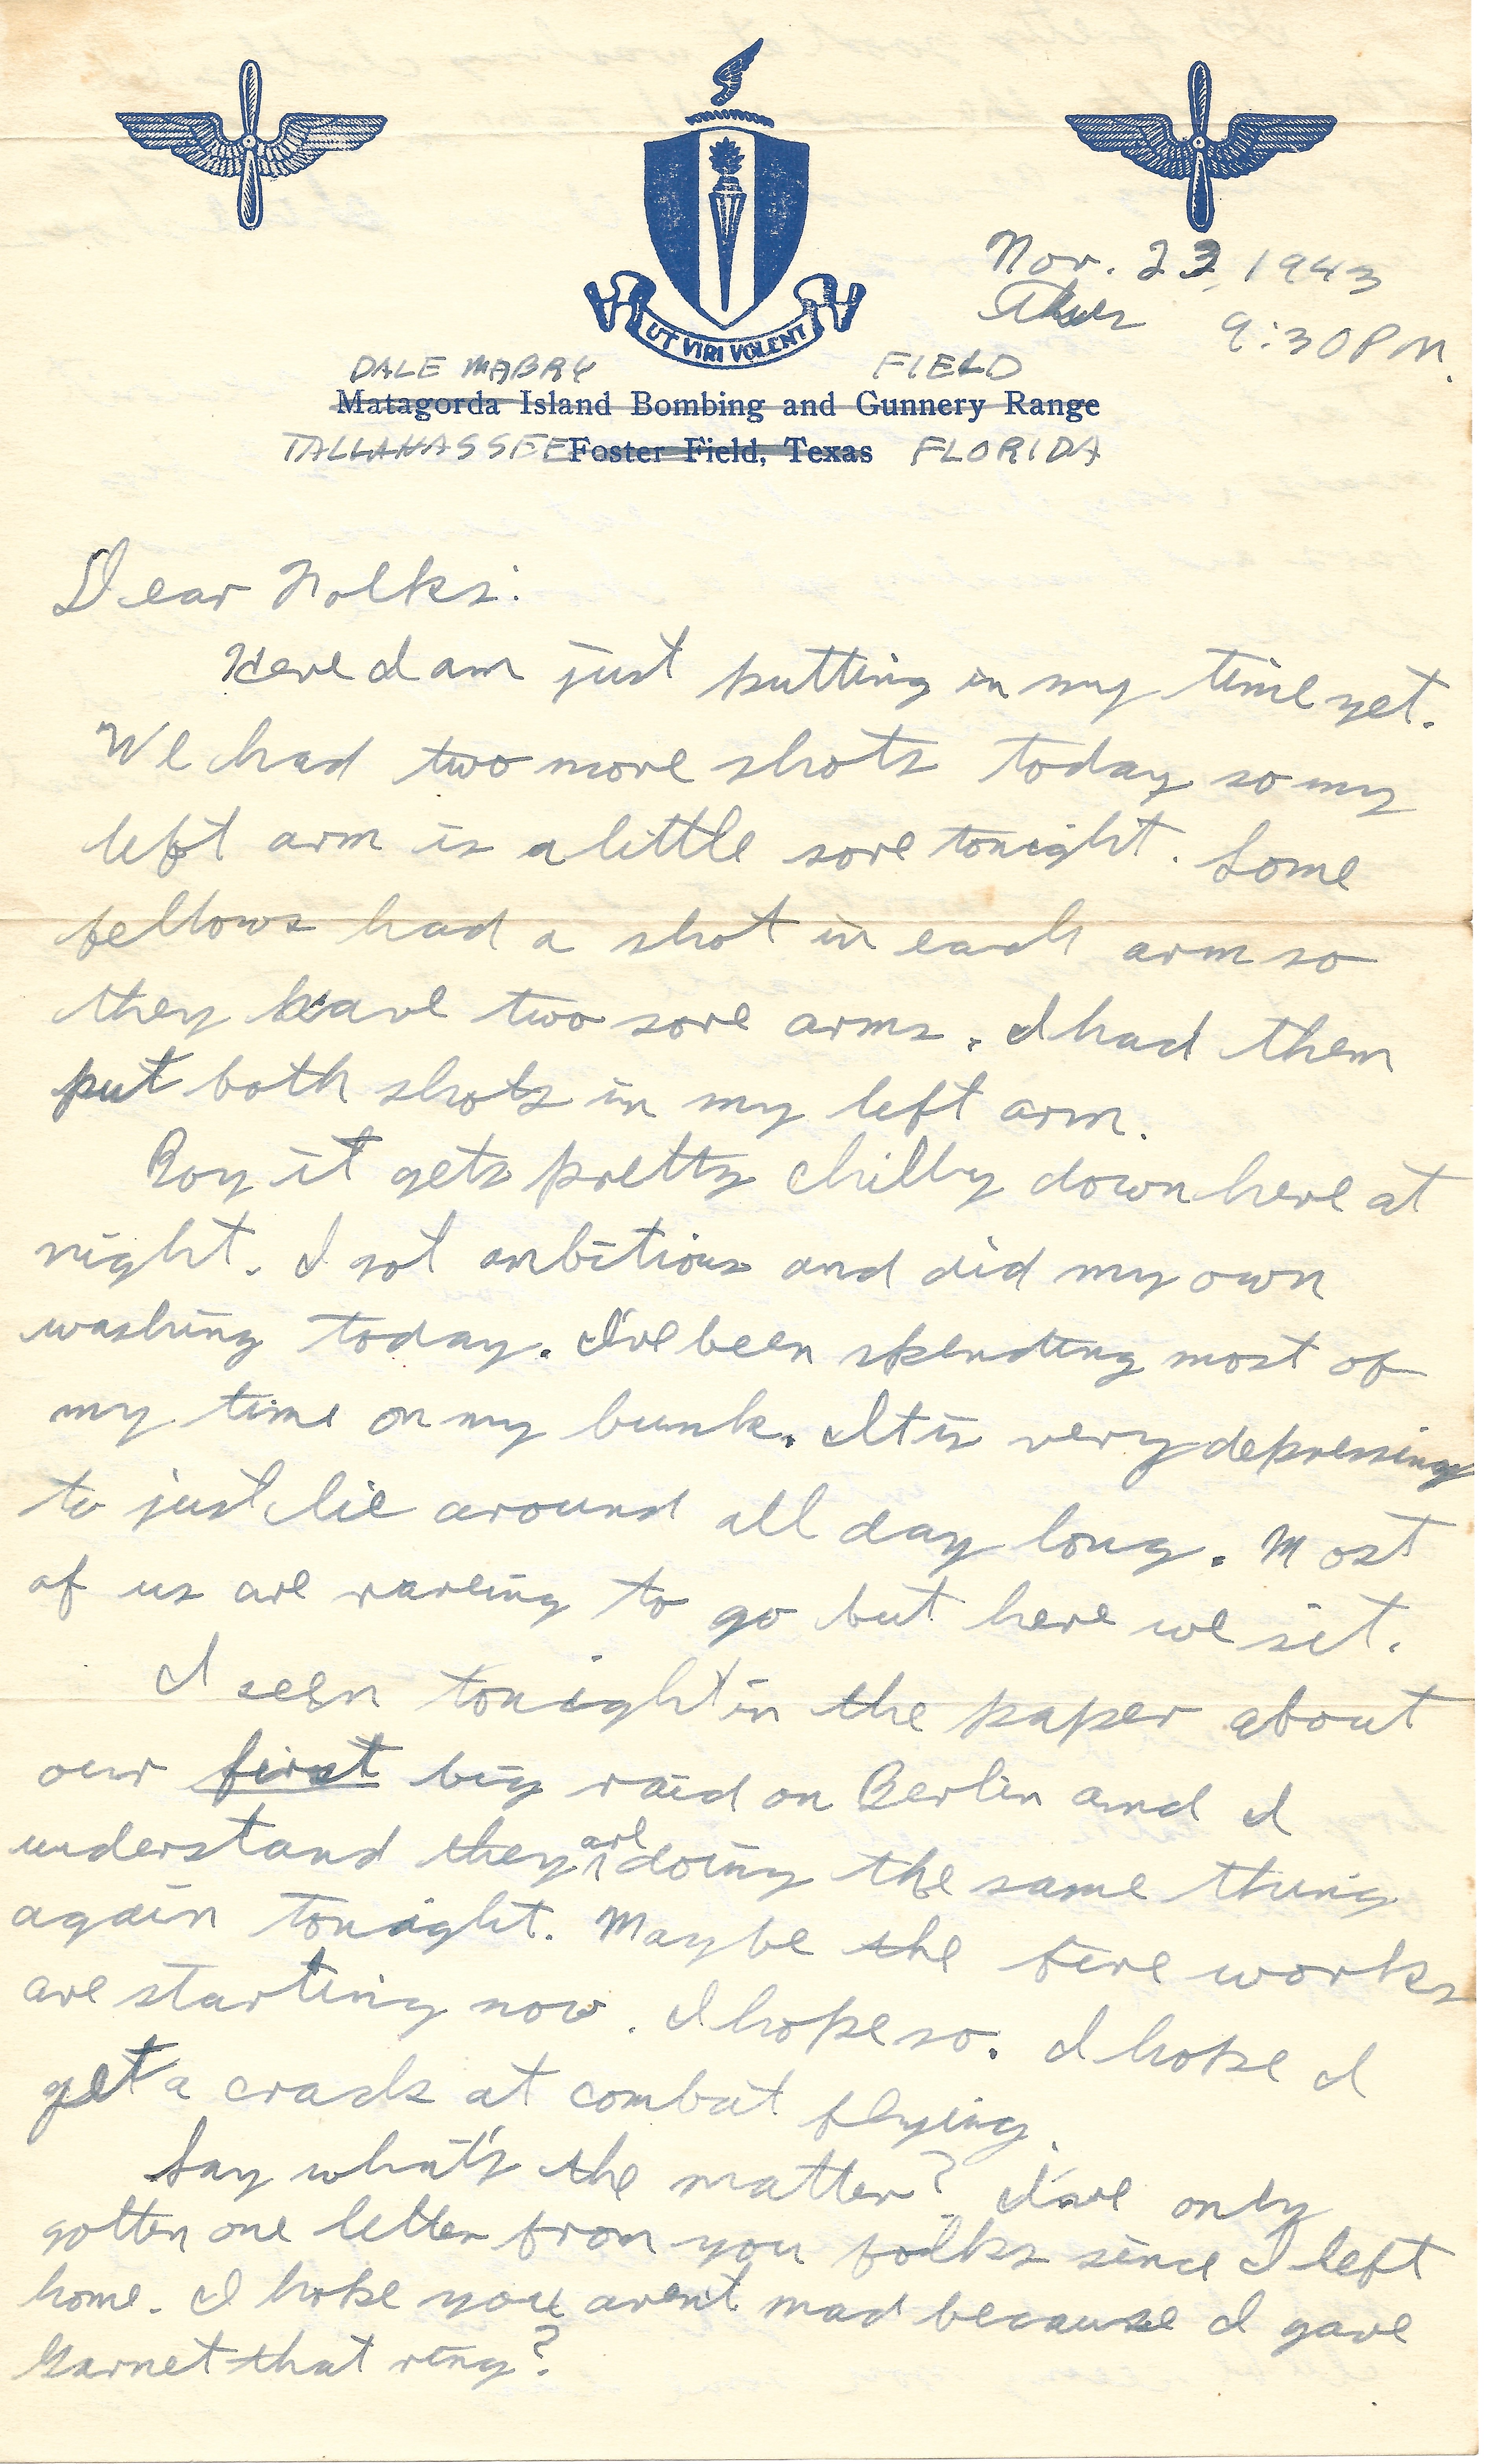 UT VIRI VOLENT
Nov. 23, 1943
9:30 PM.
DALE MABRY FIELD
Matagorda Island Bombing and Gunnery Range
TALLAHASSEE Foster Field, Texas FLORIDA
Dear Folks:
Here I am just putting in my time yet.
We had two more shots today so my
left arm is a little sore tonight. Some
fellows had a shot in each arm so
they have two sore arms. I had them
put both shots in my left arm.
Boy it gets pretty chilly down here at
night. I got ambitious and did my own
washing today. I've been spending most of
my time on my bunk. It is very depressing
to just lie around all day long. Most
of us are rareing to go but here we sit.
I seen tonight in the paper about
our first big raid on Berlin and I
understand they are doing the same thing
again tonight. Maybe the fire works
are starting now. I hope so. I hope I
get a crack at combat flying.
Say what's the matter? I've only
gotten one letter from you folks since I left
home. I hope you aren't mad because I gave
Garnet that ring?